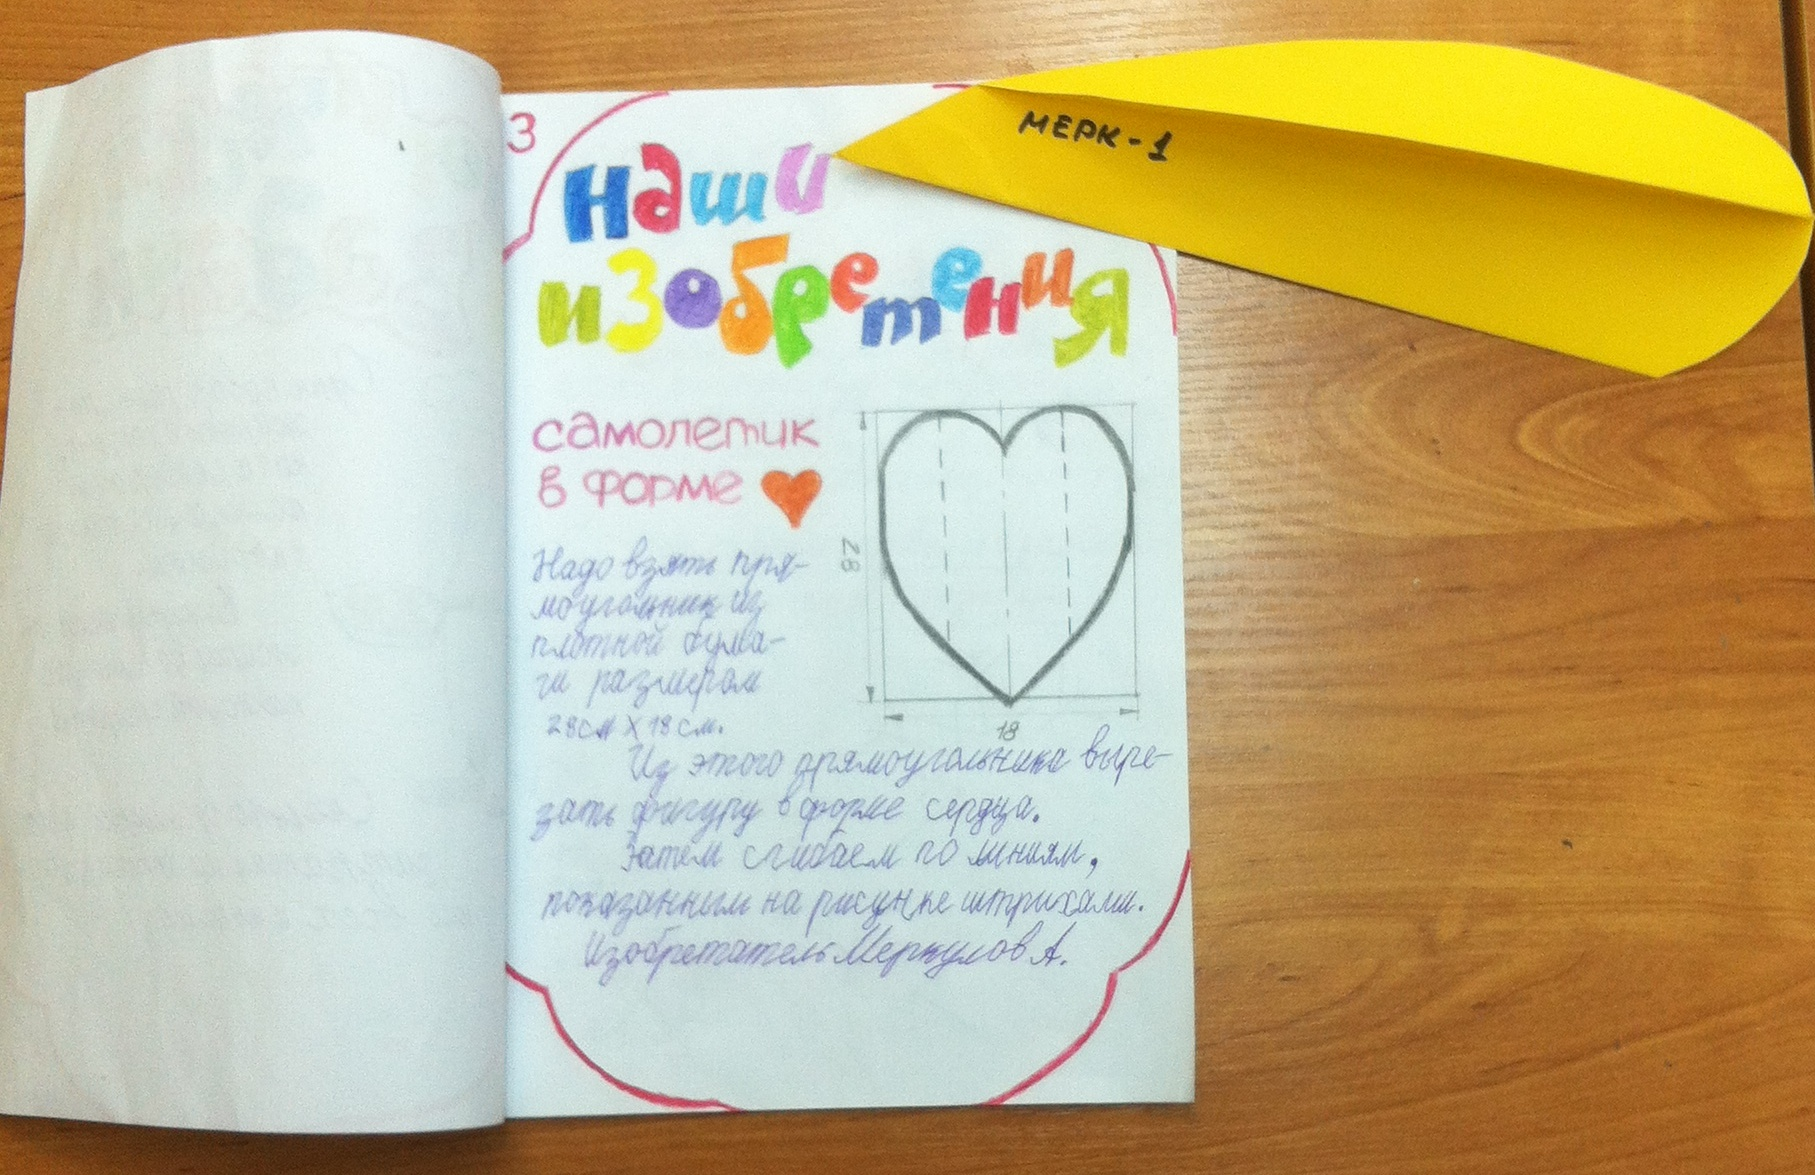 3
наши
изобретения
МЕРК-1
самолетик
в форме
Надо взять пря-
моугольник из
плотной бума-
ги размером
28см х 18см.
28
18
Из этого прямоугольника выре-
зать фигуру в форме сердца.
Затем сгибаем по линиям,
показанным на рисунке штрихами.
Изобретатель Меркулов А.